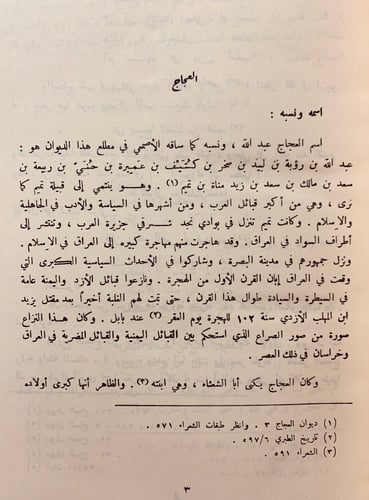 العجاج
اسمه ونسبه :
اسم العجاج عبد الله ، ونسبه كما ساقه الأصمعي في مطلع هذا الديوان هو :
عبد الله بن رؤبة بن لبيد بن صخر بن كُنَيْف بن عميرة بن حُنَيّ بن ربيعة بن
سعد بن مالك بن سعد بن زيد مناة بن تميم (١) . وهو ينتمي إلى قبيلة تميم كما
نرى ، وهي من أكبر قبائل العرب ، ومن أشهرها في السياسة والأدب في الجاهلية
والاسلام . وكانت تميم تنزل في بوادي نجد شرقي جزيرة العرب ، وتنتشر إلى
أطراف السواد في العراق . وقد هاجرت منهم مهاجرة كبيره إلى العراق في الاسلام .
ونزل جمهورهم في مدينة البصرة ، وشاركوا في الأحداث السياسية الكبرى التي
وقعت في العراق إبان القرن الأول من الهجرة . ونازعوا قبائل الأزد واليمنة عامة
في السيطرة والسيادة طوال هذا القرن ، حتى تمت لهم الغلبة أخيراً بعد مقتل يزيد
ابن المهلب الأزدي سنة ١٠٢ للهجرة يوم العقر (٢) عند بابل . وكان هذا النزاع
صورة من صور الصراع الذي استحكم بين القبائل اليمنية والقبائل المضرية في العراق
وخراسان في ذلك العصر .
وكان العجاج يكنى أبا الشعثاء ، وهي ابنته (٣) . والظاهر أنها كبرى أولاده
(١) ديوان العجاج ٣ . وانظر طبقات الشعراء ٥٧١ .
(٢) تاريخ الطبري ٥٩٧/٦ .
(٣) الشعراء ٥٩١ .
٣